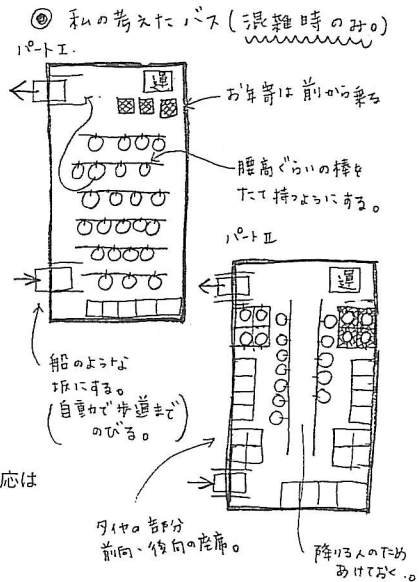 ◎ 私の考えたバス(混雑時のみ。)
パートⅠ.
運
お年寄は前から乗る
腰高ぐらいの棒を
たて持つようにする。
パートⅡ
運
船のような
坂にする。
(自動で歩道まで
のびる。)
応は
タイヤの部分
前向・後向の座席。
降りる人のため
あけておく。